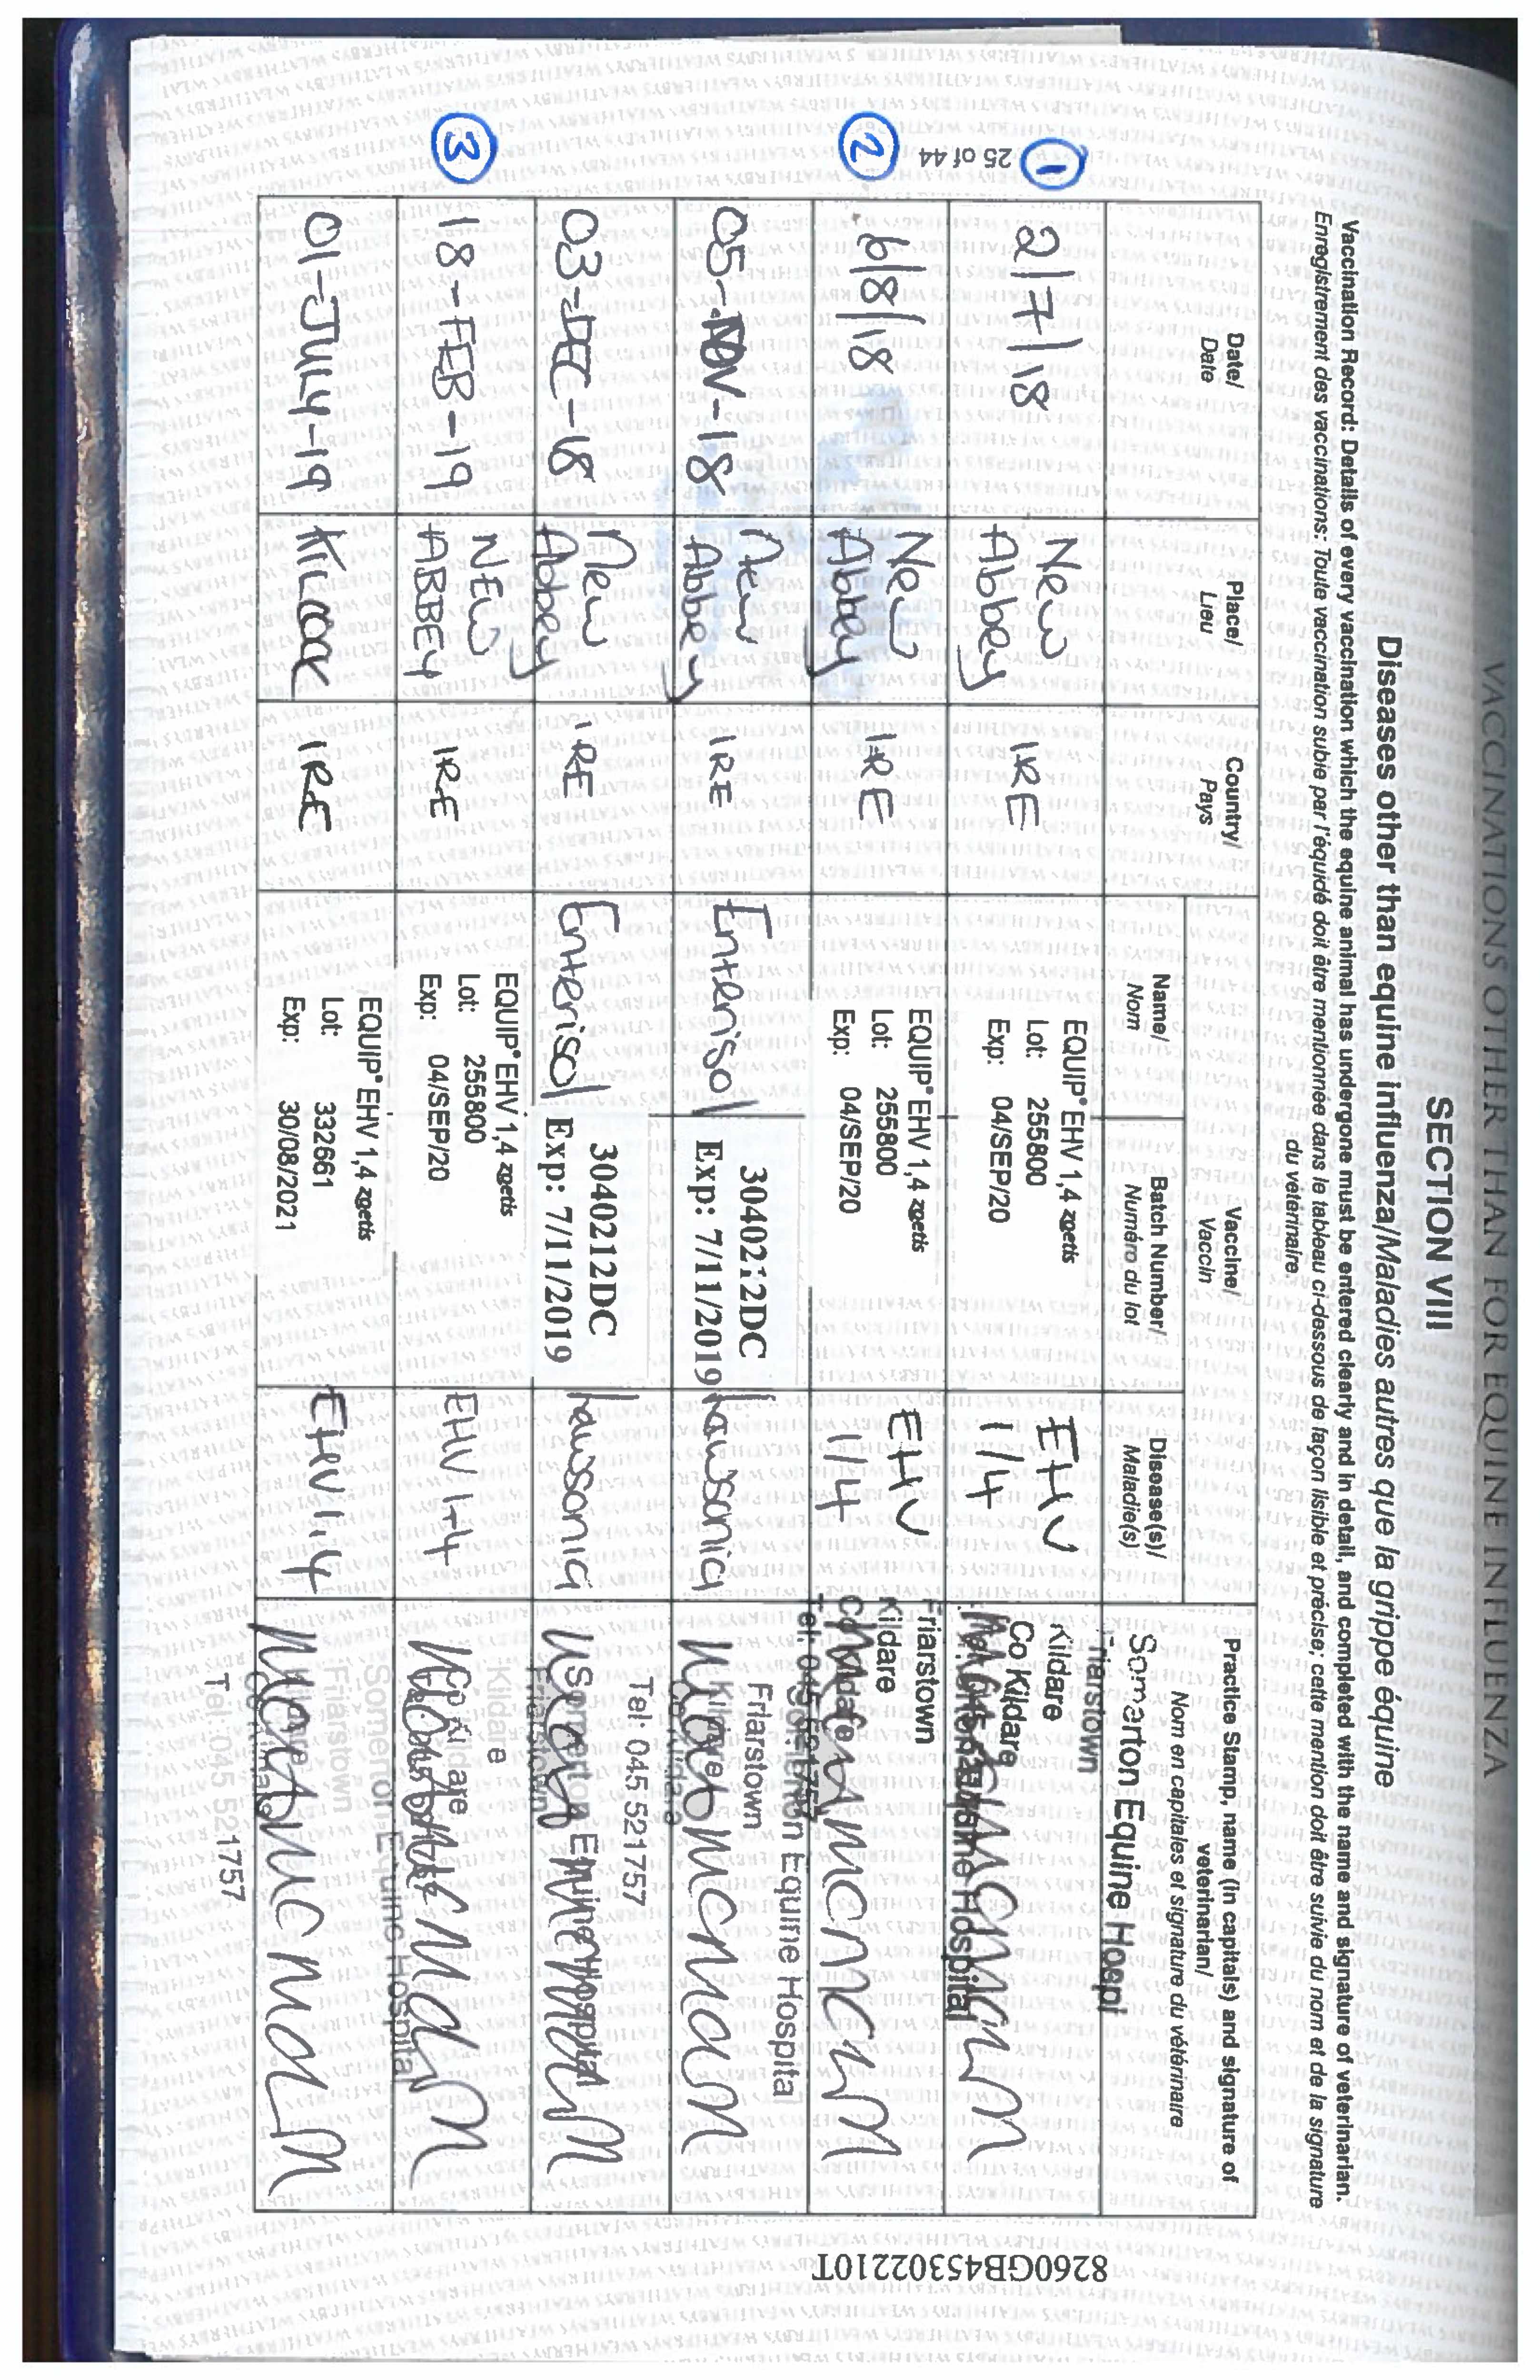 VACCINATIONS OTHER THAN FOR EQUINE INFLUENZA
SECTION VIII
Diseases other than equine influenza/Maladies autres que la grippe équine
Vaccination Record: Details of every vaccination which the equine animal has undergone must be entered clearly and in detail, and completed with the name and signature of veterinarian.
Enregistrement des vaccinations: Toute vaccination subie par l'équidé doit être mentionnée dans le tableau ci-dessous de façon lisible et précise; cette mention doit être suivie du nom et de la signature
du vétérinaire.
Date/
Date
Place/
Lieu
Country/
Pays
Vaccine/
Vaccin
Name/
Nom
Batch Number/
Numéro du lot
Disease(s)/
Maladie(s)
Practice Stamp, name (in capitals) and signature of
veterinarian/
Nom en capitales et signature du vétérinaire
1
2/7/18
New
Abbey
IRE
EQUIP EHV 1,4 zoetis
Lot: 255800
Exp: 04/SEP/20
EHV
1/4
Somerton Equine Hospi
Friarstown
Kildare
Co Kildare
2
6/8/18
New
Abbey
IRE
EQUIP EHV 1,4 zoetis
Lot: 255800
Exp: 04/SEP/20
EHV
1/4
Equine Hospital
Friarstown
Kildare
05-NOV-18
New
Abbey
IRE
Enterisol
3040212DC
Exp: 7/11/2019
Lawsonia
Equine Hospital
Friarstown
Kildare
Tel: 045 521757
03-DEC-18
New
Abbey
IRE
Enterisol
3040212DC
Exp: 7/11/2019
Lawsonia
Somerton Equine Hospital
Friarstown
3
18-FEB-19
NEW
ABBEY
IRE
EQUIP EHV 1,4 zoetis
Lot: 255800
Exp: 04/SEP/20
EHV 1+4
Kildare
Co Kildare
01-JULY-19
IRE
EQUIP EHV 1,4 zoetis
Lot: 332661
Exp: 30/08/2021
EHV 1,4
Somerton Equine Hospital
Friarstown
Kildare
Tel: 045 521757
25 of 44
8260GB45302210T